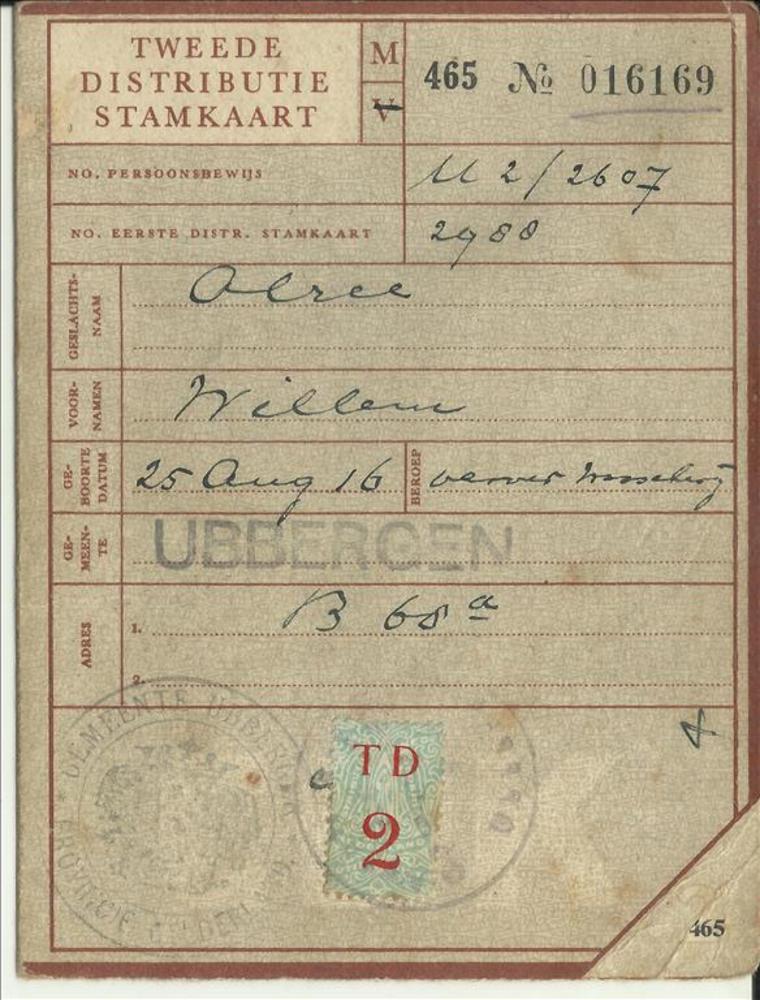 TWEEDE
DISTRIBUTIE
STAMKAART
M
V
465 № 016169
NO. PERSOONSBEWIJS
U 2/2607
NO. EERSTE DISTR. STAMKAART
2988
GESLACHTS-
NAAM
VOOR-
NAMEN
Willem
GE-
BOORTE
DATUM
25 Aug 16
BEROEP
GE-
MEEN-
TE
UBBERGEN
ADRES
1.
B 68 a
2.
GEMEENTE UBBERGEN
PROVINCIE GELDERLAND
TD
2
465